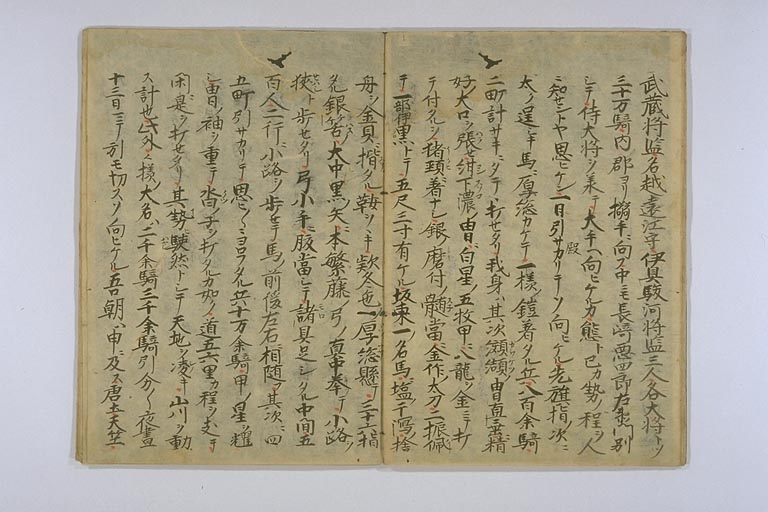 武蔵将監名越遠江守伊具駿河将監三人各大将トシテ
三十万騎内郡ヨリ搦手ヘ向ス中ニモ長崎悪四郎左衛門別
シテ侍大将ヲ承テ大手ヘ向ヒケルカ態ト已カ勢ノ程ヲ人
ニ知セントヤ思ヒケン一日引サカリテソ向ヒケル先旗指ノ次ニ
太ク逞キ馬ニ厚総カケテ一様鎧着タル兵八百余騎
二町計サキニタテ打セタリ我身ハ其次ニ纐纈ノ直垂精
好大口ヲ張セ紺下濃ノ鎧ニ白星ノ五枚甲ニ八龍ヲ金ニテ打
テ付タルヲ猪頚ニ着ナシ銀ノ磨付ノ髄当ニ金作太刀二振佩
テ一部黒トテ五尺三寸有ケル坂東一ノ名馬ニ塩干潟ノ捨
舟ヲ金貝ニ摺タル鞍ヲヽキ款冬色ノ厚総懸テ三十六指
タル銀筈ノ大中黒ノ矢ニ本繁藤ノ弓ノ真中拳テ小路ヲ
狭ト歩セタリ弓小手ニ腹当シテ諸具足シタル中間五
百人二行ニ小路ヲ歩セテ馬ノ前後左右ニ相随フ其次ニ四
五町引サカリテ思ヒ々ノヨロフタル兵十万余騎甲ノ星ヲ耀
シ鎧ノ袖ヲ重テ沓ノ子ヲ打タルカ如ク道五六里カ程ヲ支テ
閑是ヲ打セタリ其勢驍然トシテ天地ヲ凌キ山川ヲ動
ス計也此外ノ様大名ハ二千余騎三千余騎引分々夜昼
十三日マテ引モ切ラスソ向ヒケル吾朝ハ申ニ及ス唐土天竺